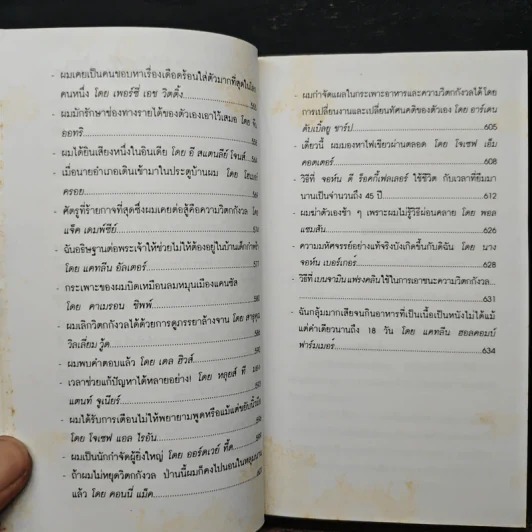 - ผมเคยเป็นคนชอบหาเรื่องเดือดร้อนใส่ตัวมากที่สุดในโลก
คนหนึ่ง โดย เพอร์ซี่ เอช วิตติ้ง
- ผมมักรักษาช่องทางรายได้ของตัวเองเอาไว้เสมอ โดย
ออทรี
- ผมได้ยินเสียงหนึ่งในอินเดีย โดย อี สแตนลีย์ โจนส์
- เมื่อนายอำเภอเดินเข้ามาในประตูบ้านผม โดย
ครอย
- ศัตรูที่ร้ายกาจที่สุดซึ่งผมเคยต่อสู้คือความวิตกกังวล โดย
แจ็ค เดมพ์ซีย์
- ฉันอธิษฐานต่อพระเจ้าให้ช่วยไม่ให้ต้องอยู่ในบ้านเด็กกำพร้า
โดย แคทลีน ฮัลเตอร์ 577
- กระเพาะของผมบิดเหมือนลมหมุนเมืองแคนซัส
โดย คาเมรอน ชิพพ์
- ผมเลิกวิตกกังวลได้ด้วยการดูภรรยาล้างจาน โดย
วิลเลียม วู้ด
- ผมพบคำตอบแล้ว โดย เดล ฮิวส์
- เวลาช่วยแก้ปัญหาได้หลายอย่าง! โดย หลุยส์ ที
แตนท์ จูเนียร์
- ผมได้รับการเตือนไม่ให้พยายามพูดหรือแม้แต่ขยับนิ้วมือ
โดย โจเซฟ แอล ไรอัน
- ผมเป็นนักกำจัดผู้ยิ่งใหญ่ โดย ออร์ดเวย์ ที้ด
- ถ้าผมไม่หยุดวิตกกังวล ป่านนี้ผมก็คงไปนอนในหลุมนาน
แล้ว โดย คอนนี่ แม็ค
- ผมกำจัดแผลในกระเพาะอาหารและความวิตกกังวลได้โดย
การเปลี่ยนงานและเปลี่ยนทัศนคติของตัวเอง โดย อาร์เดน
ดับเบิ้ลยู ชาร์ป 605
- เดี๋ยวนี้ ผมมองหาไฟเขียวผ่านตลอด โดย โจเซฟ เอ็ม
คอตเตอร์ 608
- วิธีที่ จอห์น ดี ร็อคกี้เฟลเลอร์ ใช้ชีวิต กับเวลาที่ยืมมา
นานเป็นจำนวนถึง 45 ปี 612
- ผมฆ่าตัวเองช้า ๆ เพราะผมไม่รู้วิธีผ่อนคลาย โดย พอล
แซมสัน 626
- ความมหัศจรรย์อย่างแท้จริงบังเกิดขึ้นกับดิฉัน โดย นาง
จอห์น เบอร์เกอร์ 628
- วิธีที่ เบนจามิน แฟรงคลิน ใช้ในการเอาชนะความวิตกกังวล...
631
- ฉันกลุ้มมากเสียจนกินอาหารที่เป็นเนื้อเป็นหนังไม่ได้แม้
แต่คำเดียวนานถึง 18 วัน โดย แคทลีน ฮอลคอมบ์
ฟาร์มเมอร์ 634